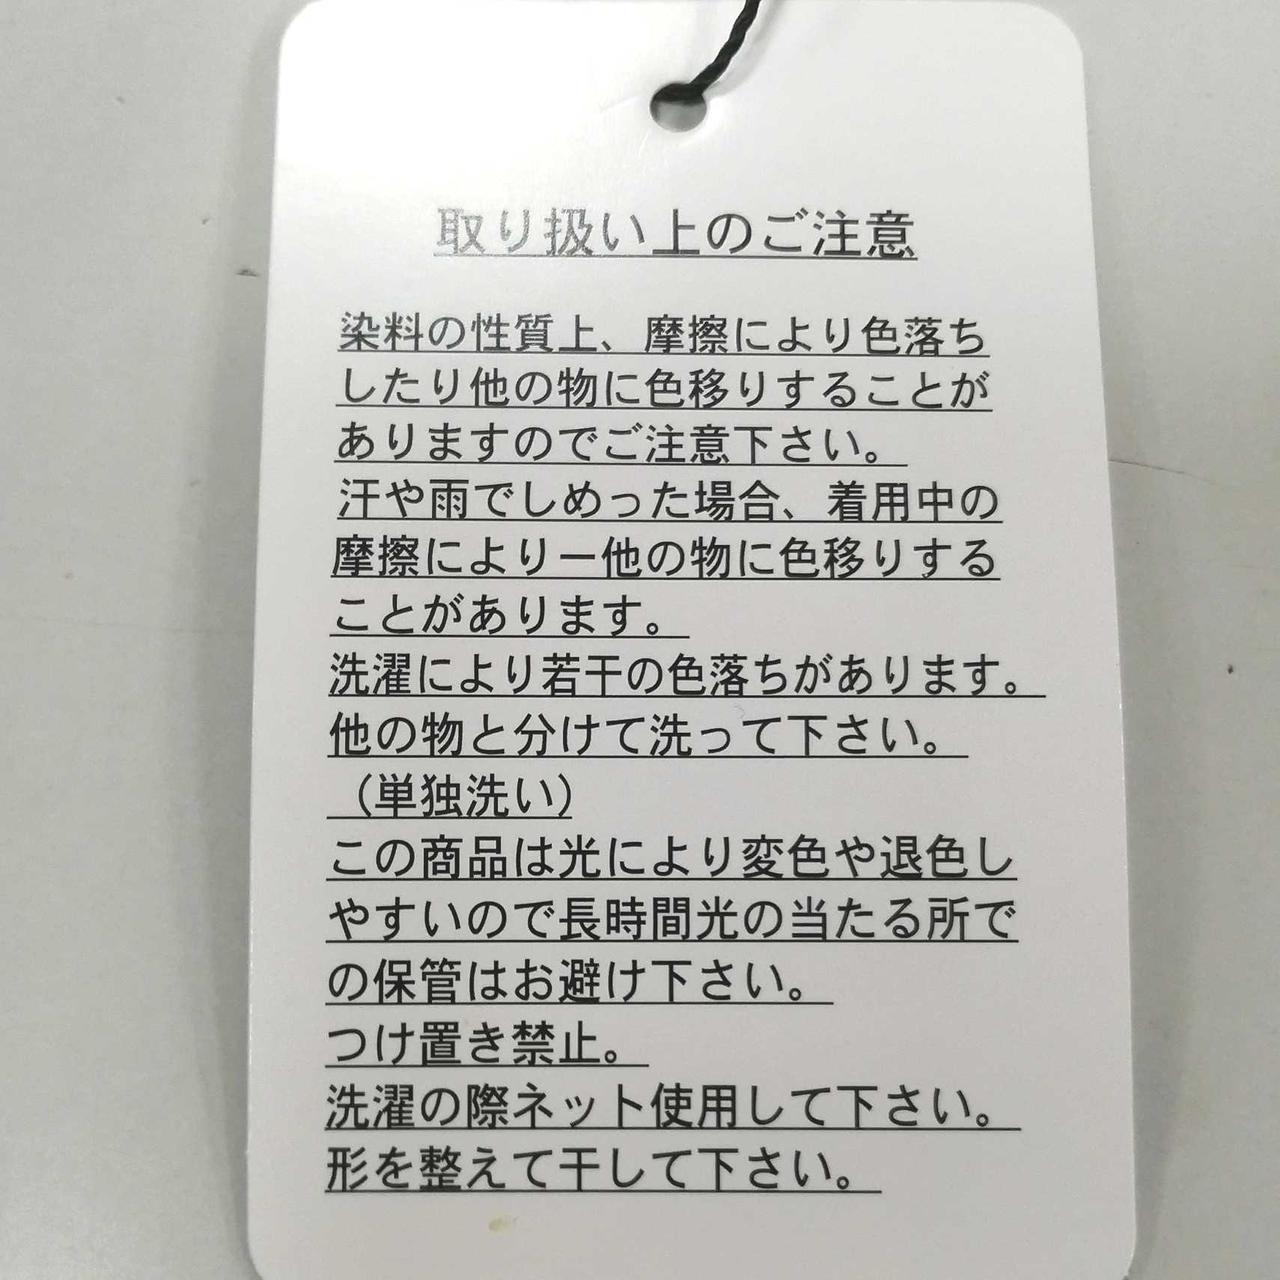 取り扱い上のご注意
染料の性質上、摩擦により色落ち
したり他の物に色移りすることが
ありますのでご注意下さい。
汗や雨でしめった場合、着用中の
摩擦によりー他の物に色移りする
ことがあります。
洗濯により若干の色落ちがあります。
他の物と分けて洗って下さい。
（単独洗い）
この商品は光により変色や退色し
やすいので長時間光の当たる所で
の保管はお避け下さい。
つけ置き禁止。
洗濯の際ネット使用して下さい。
形を整えて干して下さい。